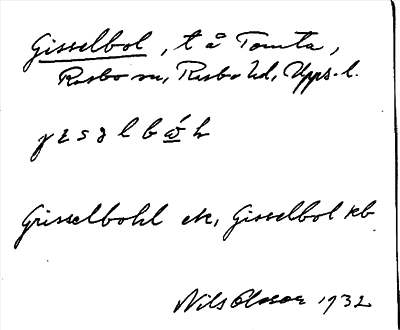 Gisselbol, t å Tomta,
Rasbo sn, Rasbo hd, Upps. l.
Grisselbohl ek, Gisselbol kb
Nils Olsson 1932